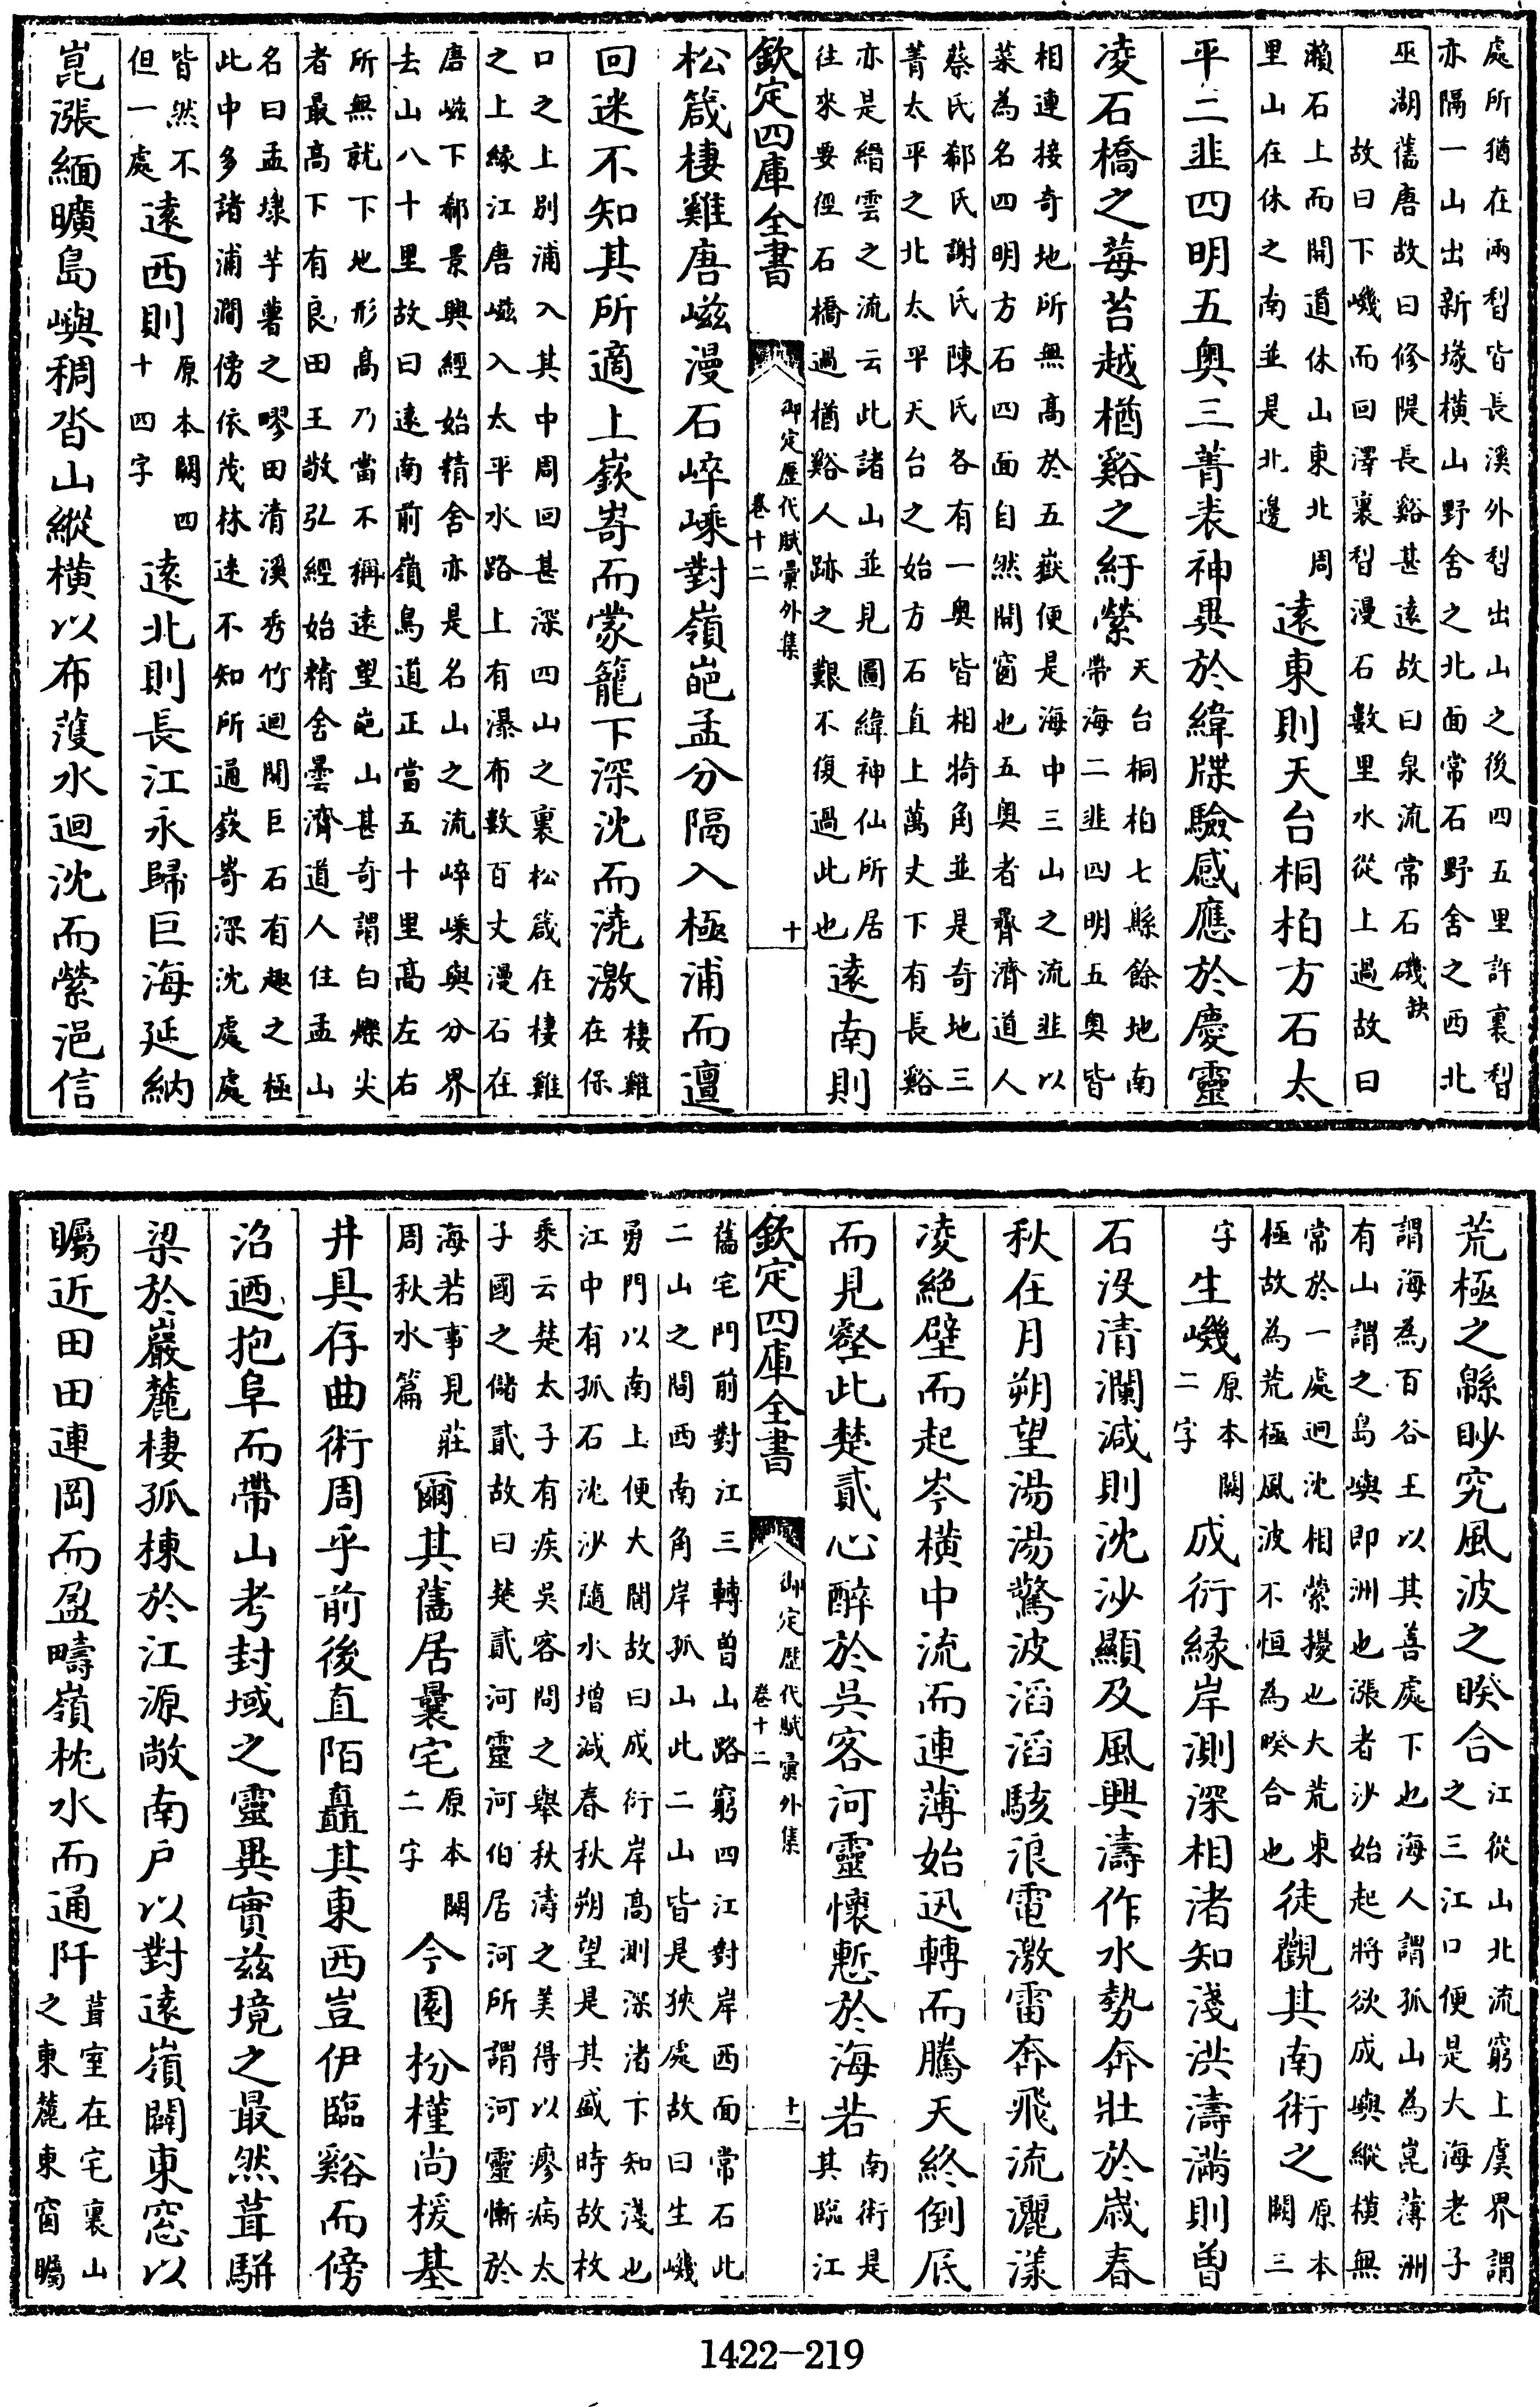 處所猶在兩䂮皆長溪外䂮出山之後四五里許裏䂮
亦隔一山出新塚橫山野舍之北面常石野舍之西北
巫湖舊唐故曰修隄長谿甚遠故曰泉流常石磯缺
故曰下㠖而回澤裏䂮漫石數里水從上過故曰
瀨石上而開道休山東北周
里山在休之南並是北邊
遠東則天台桐柏方石太
平二韭四明五奥三菁表神異於緯牒驗感應於慶靈
凌石橋之莓苔越楢谿之紆縈
天台桐柏七縣餘地南
帶海二韭四明五奥皆
相連接奇地所無高於五嶽便是海中三山之流韭以
菜為名四明方石四面自然開窗也五奥者齊濟道人
蔡氏郗氏謝氏陳氏各有一奥皆相犄角並是奇地三
菁太平之北太平天台之始方石直上萬丈下有長谿
亦是縉雲之流云此諸山並見圖緯神仙所居
往來要徑石橋過楢谿人跡之艱不復過此也
遠南則
欽定四庫全書
御定歷代賦彙外集
卷十二
十
松箴棲雞唐嵫漫石崪嵊對嶺䶕孟分隔入極浦而邅
回迷不知其所適上嶔㟢而蒙籠下深沈而澆激
棲雞
在保
口之上別浦入其中周回甚深四山之裏松箴在棲雞
之上緣江唐嵫入太平水路上有瀑布數百丈漫石在
唐嵫下郗景興經始精舍亦是名山之流崪嵊與分界
去山八十里故曰遠南前嶺鳥道正當五十里高左右
所無就下地形高乃當不稱遠望䶕山甚奇謂白爍尖
者最高下有良田王敬弘經始精舍曇濟道人住孟山
名曰孟埭芋薯之疁田清溪秀竹迴開巨石有趣之極
此中多諸浦澗傍依茂林迷不知所通嶔㟢深沈處處
皆然不
但一處
遠西則
原本闕四
十四字
遠北則長江永歸巨海延納
崑漲緬曠島嶼稠沓山縱橫以布䕶水迴沈而縈浥信
荒極之緜眇究風波之睽合
江從山北流窮上虞界謂
之三江口便是大海老子
謂海為百谷王以其善處下也海人謂孤山為崑薄洲
有山謂之島嶼即洲也漲者沙始起將欲成嶼縱橫無
常於一處迴沈相縈擾也大荒東
極故為荒極風波不恒為睽合也
徒觀其南術之
原本
闕三
字
生㠖
原本闕
二字
成衍緣岸測深相渚知淺洪濤滿則曽
石没清瀾減則沈沙顯及風興濤作水勢奔壯於歲春
秋在月朔望湯湯驚波滔滔駭浪電激雷奔飛流灑漾
凌絕壁而起岑橫中流而連薄始迅轉而騰天終倒底
而見壑此楚貳心醉於吳客河靈懷慙於海若
南術是
其臨江
欽定四庫全書
御定歷代賦彙外集
卷十二
十一
舊宅門前對江三轉曽山路窮四江對岸西面常石此
二山之間西南角岸孤山此二山皆是狹處故曰生㠖
勇門以南上便大闊故曰成衍岸高測深渚下知淺也
江中有孤石沈沙隨水增減春秋朔望是其盛時故枚
乘云楚太子有疾吳客問之舉秋濤之美得以瘳病太
子國之儲貳故曰楚貳河靈河伯居河所謂河靈慚於
海若事見莊
周秋水篇
爾其舊居曩宅
原本闕
二字
今園枌槿尚援基
井具存曲術周乎前後直陌矗其東西豈伊臨谿而傍
沼迺抱阜而帶山考封域之靈異實兹境之最然葺駢
梁於巖麓棲孤棟於江源敞南戶以對遠嶺闢東窓以
矚近田田連岡而盈疇嶺枕水而通阡
葺室在宅裏山
之東麓東窗矚
1422—219